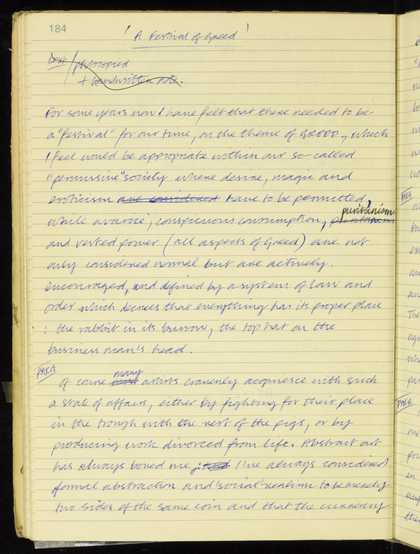 184
'A Festival of Greed'
photocopied
+ handwritten note.
For some years now I have felt that there needed to be
a 'festival' for our time, on the theme of GREED, which
I feel would be appropriate within our so-called
"permissive" society where desire, magic and
eroticism are considered have to be permitted
while avarice, conspicuous consumption, puritanism
and vested power (all aspects of Greed) are not
only considered normal but are actively
encouraged, and defined by a system of law and
order which decrees that everything has its proper place
: the rabbit in its burrow, the top hat on the
business man's head.
Of course many artists cravenly acquiesce with such
a state of affairs, either by fighting for their place
in the trough with the rest of the pigs, or by
producing work divorced from life. Abstract art
has always bored me; I've always considered
formal abstraction and social realism to be merely
two sides of the same coin and that the currency